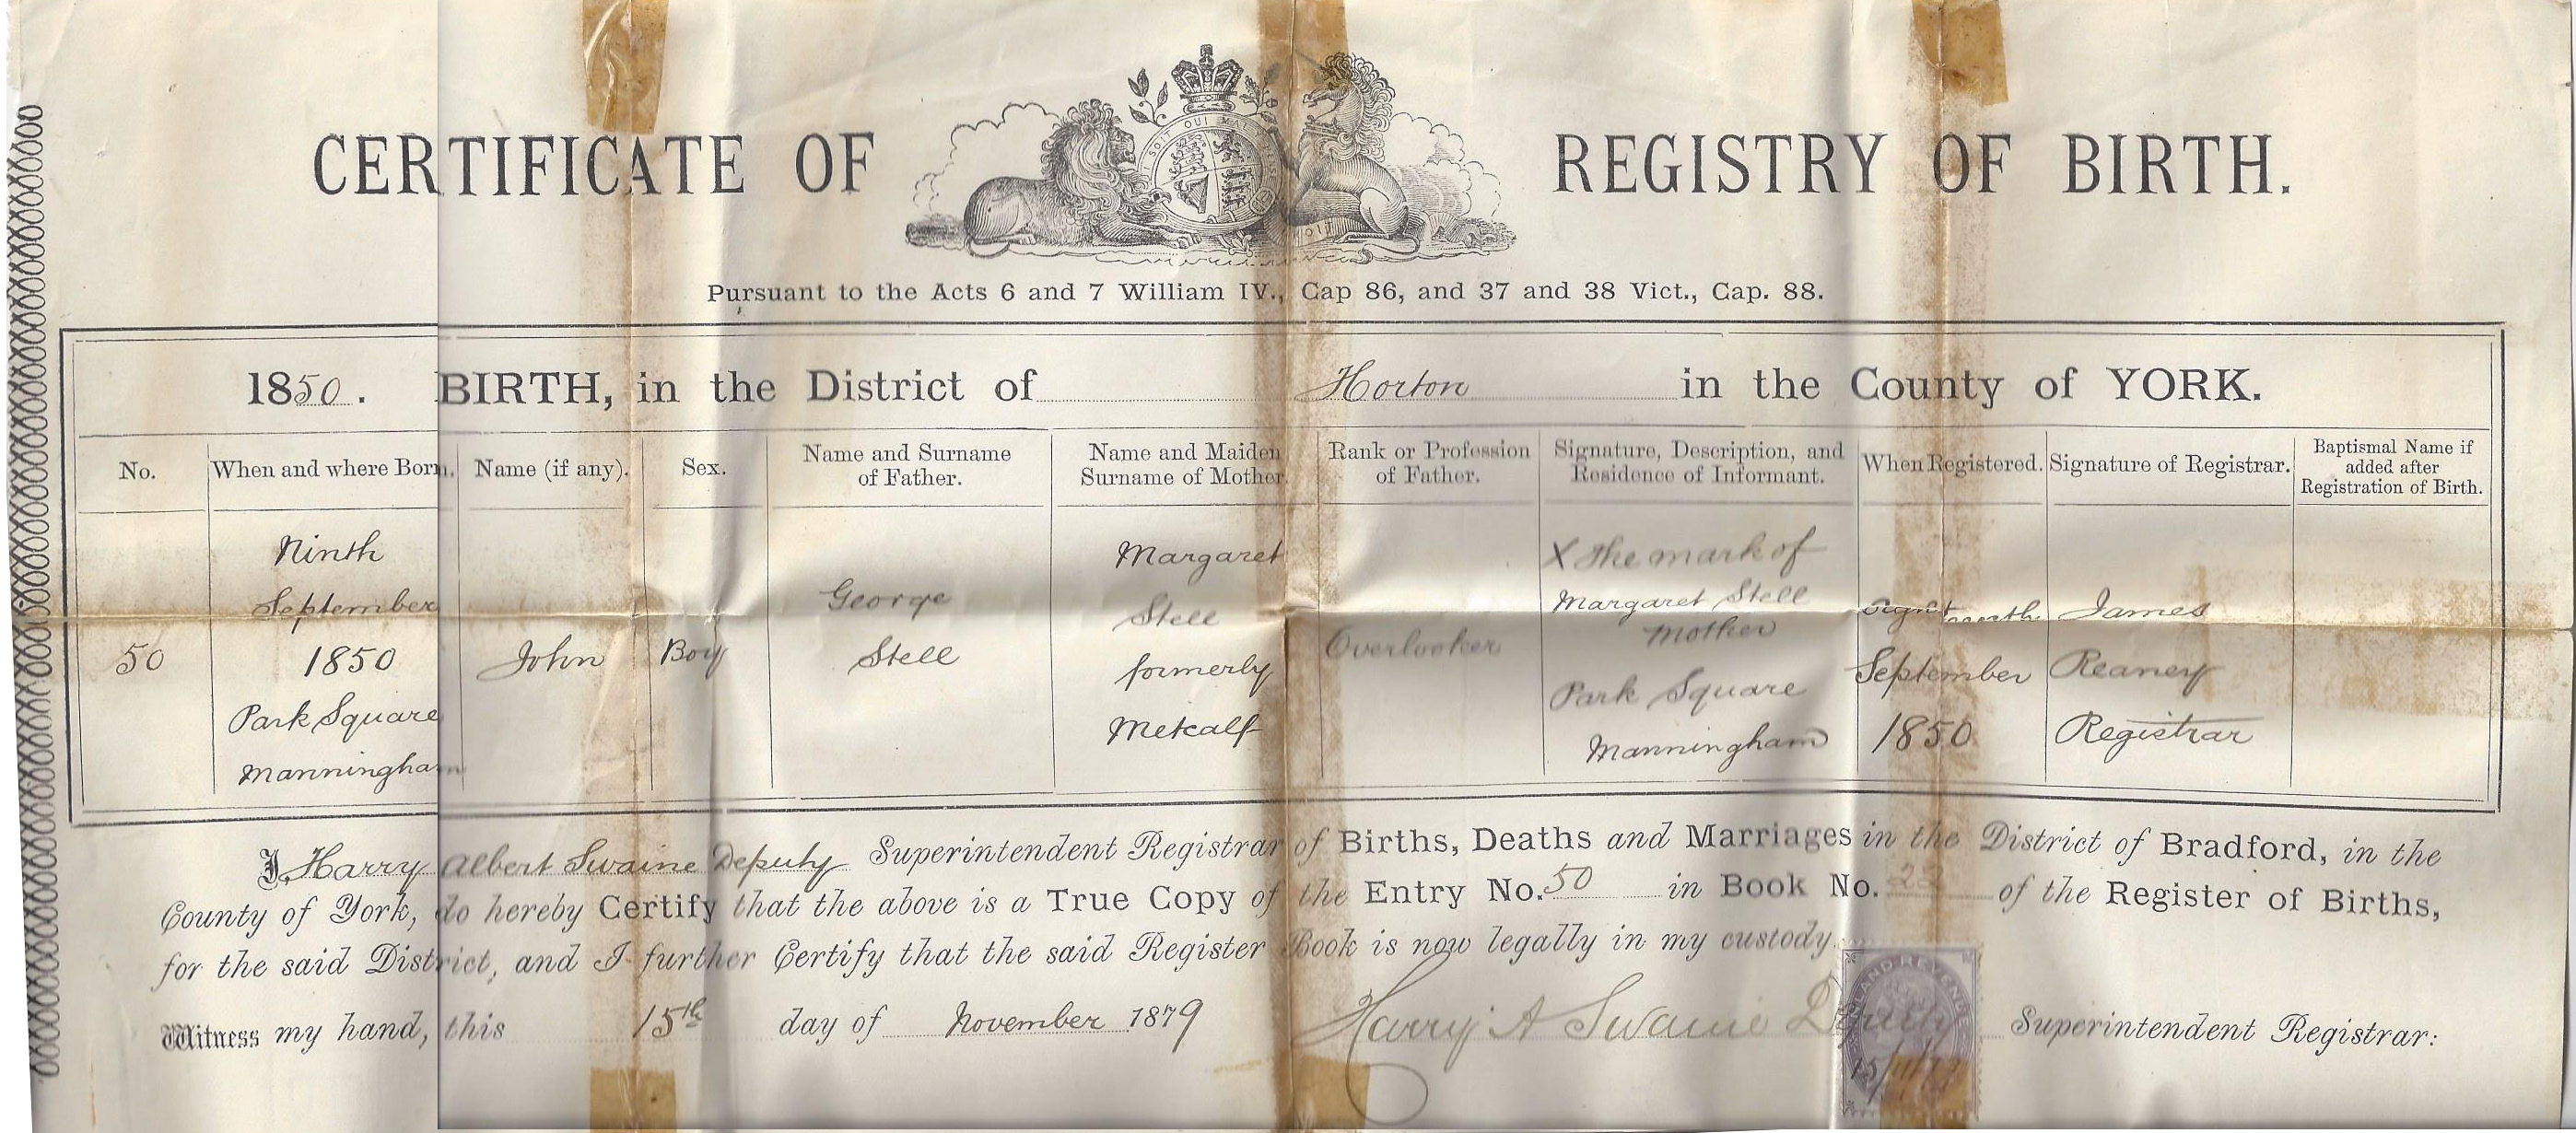 CERTIFICATE OF REGISTRY OF BIRTH.
SOIT QUI M
Pursuant to the Acts 6 and 7 William IV., Cap 86, and 37 and 38 Vict., Cap. 88.
1850. BIRTH, in the District of Horton in the County of YORK.
No.
When and where Born.
Name (if any).
Sex.
Name and Surname
of Father.
Name and Maiden
Surname of Mother.
Rank or Profession
of Father.
Signature, Description, and
Residence of Informant.
When Registered.
Signature of Registrar.
Baptismal Name if
added after
Registration of Birth.
50
Ninth
September
1850
Park Square
Manningham
John
Boy
George
Stell
Margaret
Stell
formerly
Metcalf
Overlooker
X The mark of
Margaret Stell
Mother
Park Square
Manningham
Eighteenth
September
1850
James
Reaney
Registrar
I, Harry Albert Swaine Deputy Superintendent Registrar of Births, Deaths and Marriages in the District of Bradford, in the
County of York, do hereby Certify that the above is a True Copy of the Entry No. 50 in Book No. of the Register of Births,
for the said District, and I further Certify that the said Register Book is now legally in my custody.
Witness my hand, this 15th day of November 1879 Harry A Swaine Deputy Superintendent Registrar:
INLAND REVENUE